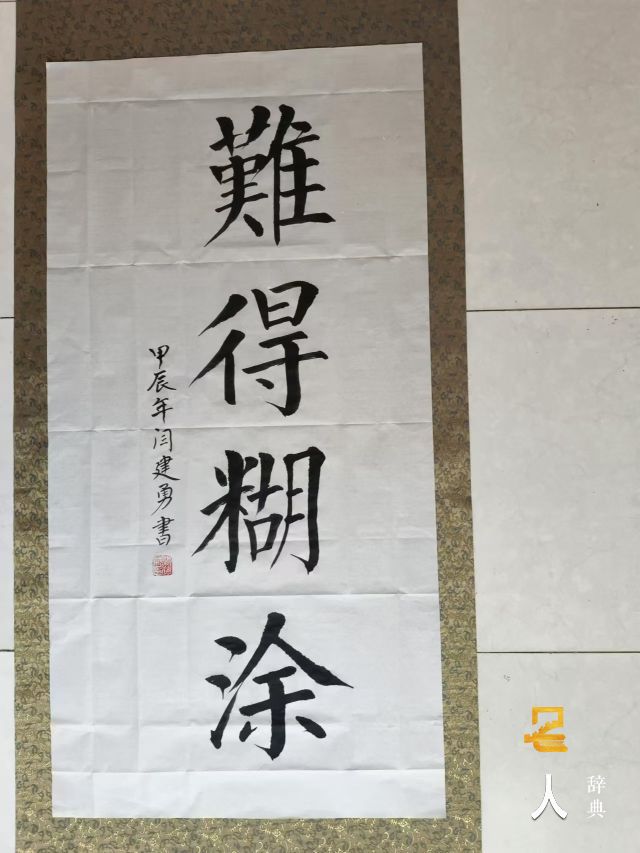 難得糊涂
甲辰年闫建勇書
名人辞典